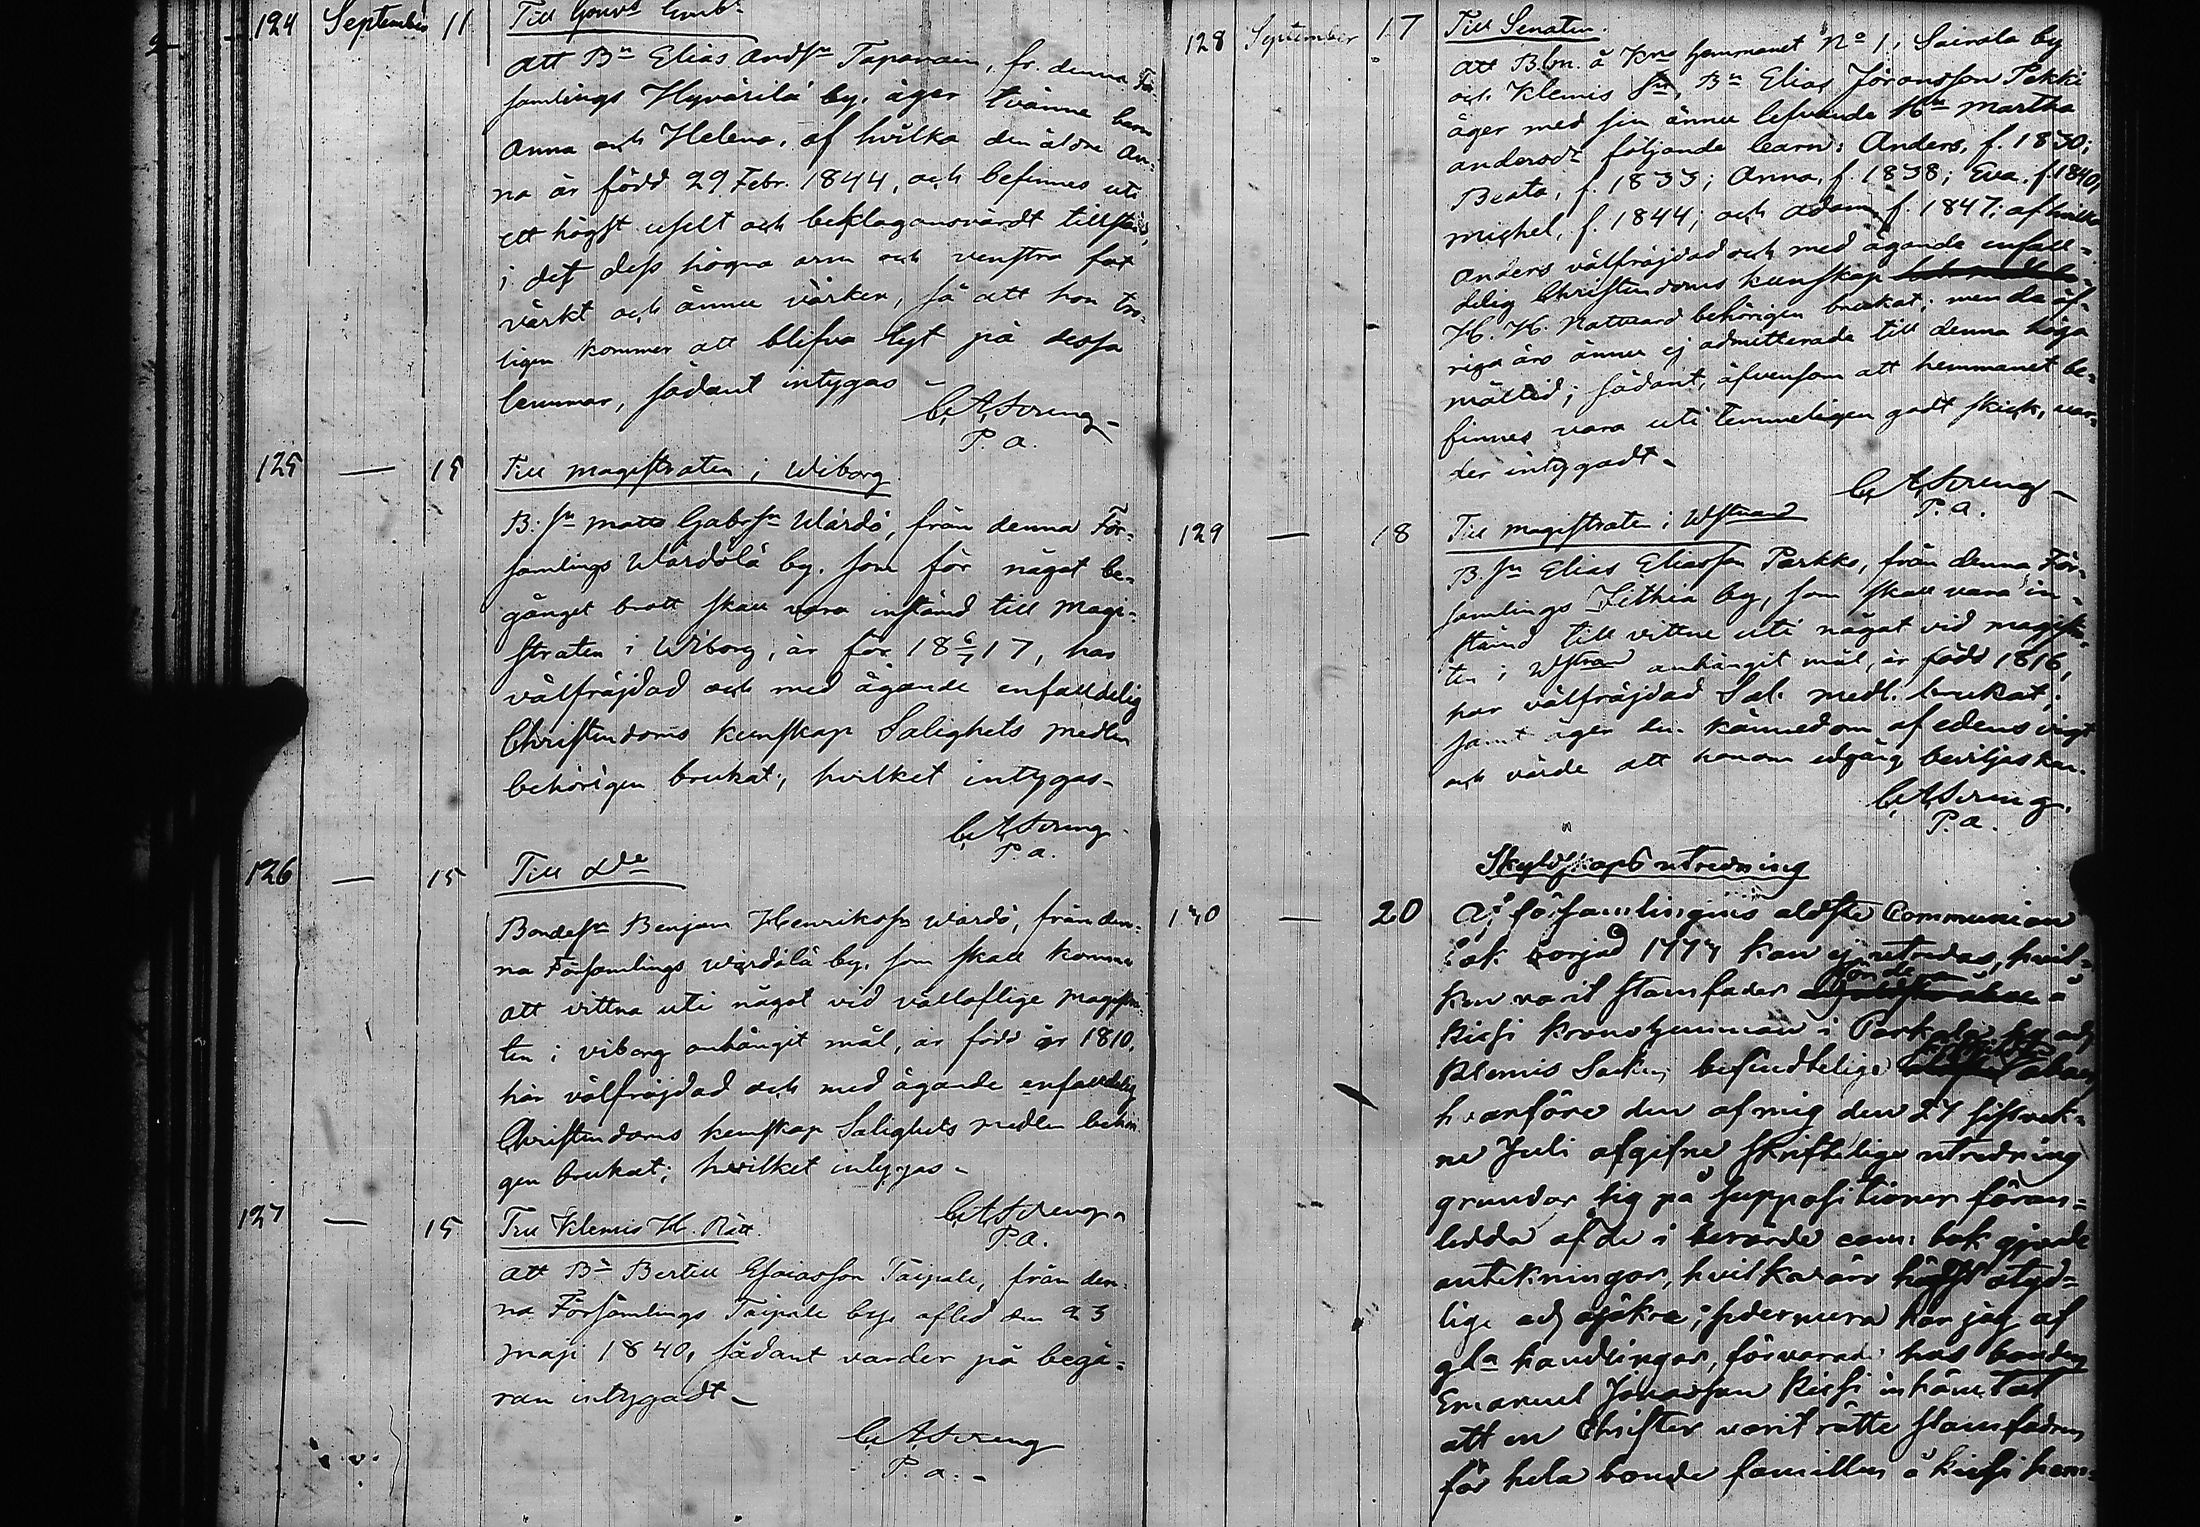 124 September 11 Till Gouvs Embt
att Bn Elias Andssn Tapanain, fr. denna För-
samlings Hyvärilä by, äger tvänne barn
Anna och Helena, af hvilka den äldre An-
na är född 29 Febr. 1844, och befinnes uti
ett högst uselt och beklagansvärdt tillstånd,
i det dess högra arm och venstra fot
värkt och ännu värker, så att hon tro-
ligen kommer att blifva lyt på dessa
lemmar, sådant intygas –
C. A. Streng
P. a.
125 — 15 Till Magistraten i Wiborg
B.sn Matts Gabrsn Wårdö, från denna För-
samlings Wårdölä by, som för något be-
gånget brott skall vara instämd till Magi-
straten i Wiborg, är för 18 6/7 17, har
välfräjdad och med ägande enfalldelig
Christendoms kunskap Salighets medlen
behörigen brukat; hvilket intygas –
C. A. Streng
P. a.
126 — 15 Till do
Bondesn Benjam Henrikssn Wårdö, från den-
na Församlings Wårdölä by, som skall komma
att vittna uti något vid vällofliga Magistra-
ten i Viborg anhängit mål, är född år 1810,
har välfräjdad och med ägande enfalldelig
Christendoms kunskap Salighets medlen behöri-
gen brukat; hvilket intygas –
C. A. Streng
P. a.
127 — 15 Till Klemis H. Rätt.
att Bn Bertill Esaiasson Taipale, från den-
na Församlings Taipale by, afled den 23
Maji 1840, sådant varder på begä-
ran intygadt –
C. A. Streng
P. a. –
128 September 17 Till Senaten.
att Bbn. å Kro hemmanet No 1, Sairala by
och Klemis Sn, Bn Elias Göransson Pekki
äger med sin ännu lefvande Hu Martha
Andersdr följande barn: Anders, f. 1830;
Beata, f. 1833; Anna, f. 1838; Eva, f. 1840;
Michel, f. 1844; och Adam, f. 1847; af hvilka
Anders välfräjdad och med ägande enfall-
delig Christendoms kunskap
H. H. Nattvard behörigen brukat; men de öf-
riga äro ännu ej admitterade till denna höga
måltid; sådant, äfvensom att hemmanet be-
finnes vara uti temmeligen godt skick, var-
der intygadt –
C. A. Streng
P. a.
129 — 18 Till Magistraten i Wstrand
B.sn Elias Eliasson Parkko, från denna För-
samlings Sithia by, som skall vara in-
stämd till vittne uti något vid Magistra-
ten i Wstran anhängit mål, är född 1816,
har välfräjdad Sal. medl. brukat;
samt äger den kännedom af edens vigt
och värde att honom edgång beviljas kan.
C. A. Streng.
P. a.
Skyldskaps utredning
130 — 20 Af församlingens äldste Communion
bok börjad 1777 kan ej utredas, hvil-
ken varit stamfader bönde å
Kiesi kronohemman i Parkola by och
Klemis Sockn befindtelige åboer
hvarföre den af mig den 27 sistvek-
ne Juli afgifne skriftelige utredning
grundar sig på suppositioner föran-
ledda af de i berörde com: bok gjorde
antekningar, hvilka äro högst otyd-
lige och osäkra; hvaremot har jag af
gla handlingar, förvarade hos bonden
Emanuel Johansson Kiesi inhämtat
att en Christer varit rätte stamfadren
för hela bonde familien å Kiesi hem-